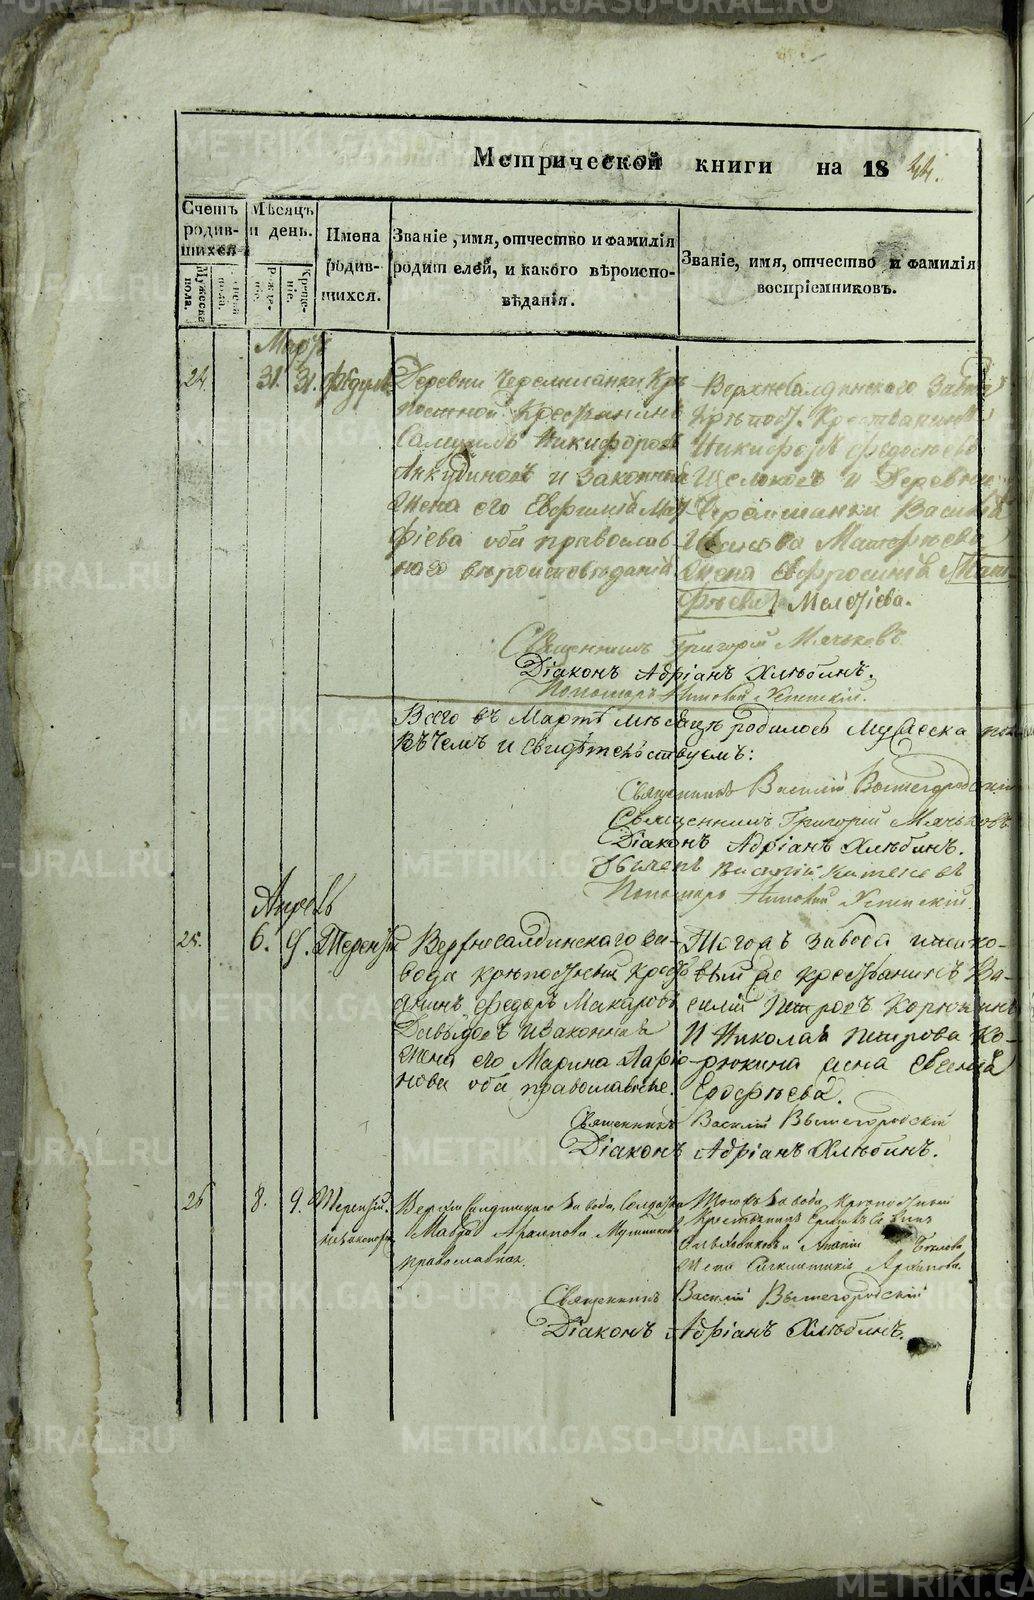 Метрической книги на 18 44.
Счетъ родившихся
Мѣсяцъ и день.
Имена родившихся.
Званіе, имя, отчество и фамилія родителей, и какого вѣроисповѣданія.
Званіе, имя, отчество и фамилія воспріемниковъ.
Мужеска пола.
Рожденіе.
Крещеніе.
Мартъ
24. 31. 31. Федулъ
Деревни Черемшанки Крѣ-
постной Крестьянинъ
Самуилъ Никифоровъ
Анкудиновъ и законная
жена его Евфимія Мат-
фіева оба православ-
наго вѣроисповѣданія
Верхнесалдинского завода
Крѣпост. Крестьянинъ
Никифоръ Федосѣевъ
Щелоковъ и Деревни
Черемшанки Василія
Иванова Матфѣева
жена Ефросинія Мат-
фѣева Мелетіева.
Священникъ Григорій Мячковъ
Діаконъ Адріанъ Хлѣбинъ.
Пономарь
Всего въ Мартѣ мѣсяцѣ родилось мужеска пол
Въ чемъ и свидѣтельствуемъ:
Священникъ Василій Вышегородскій
Священникъ Григорій Мячковъ
Діаконъ Адріанъ Хлѣбинъ.
Пономарь
Апрель
25. 6. 9. Терентій
Верхнесалдинскаго за-
вода крѣпостный Крестья-
нинъ Федоръ Макаровъ
Давыдовъ и законная
жена его Марина Ларіо-
нова оба православные.
Тогожъ завода
крестьянинъ Ва-
силій Петровъ Корюкинъ
и Николая Петрова Ко-
рюкина жена Евгенія
Ерофѣева.
Священникъ Василій Вышегородскій
Діаконъ Адріанъ Хлѣбинъ.
26 8. 9. Терентій
незаконорож
Верхнесалдинскаго завода, Солдатка
Мавра Архипова
православная.
Тогожъ завода, Крѣпостный
Крестьянинъ
жена Архипова.
Священникъ Василій Вышегородскій
Діаконъ Адріанъ Хлѣбинъ.
METRIKI.GASO-URAL.RU